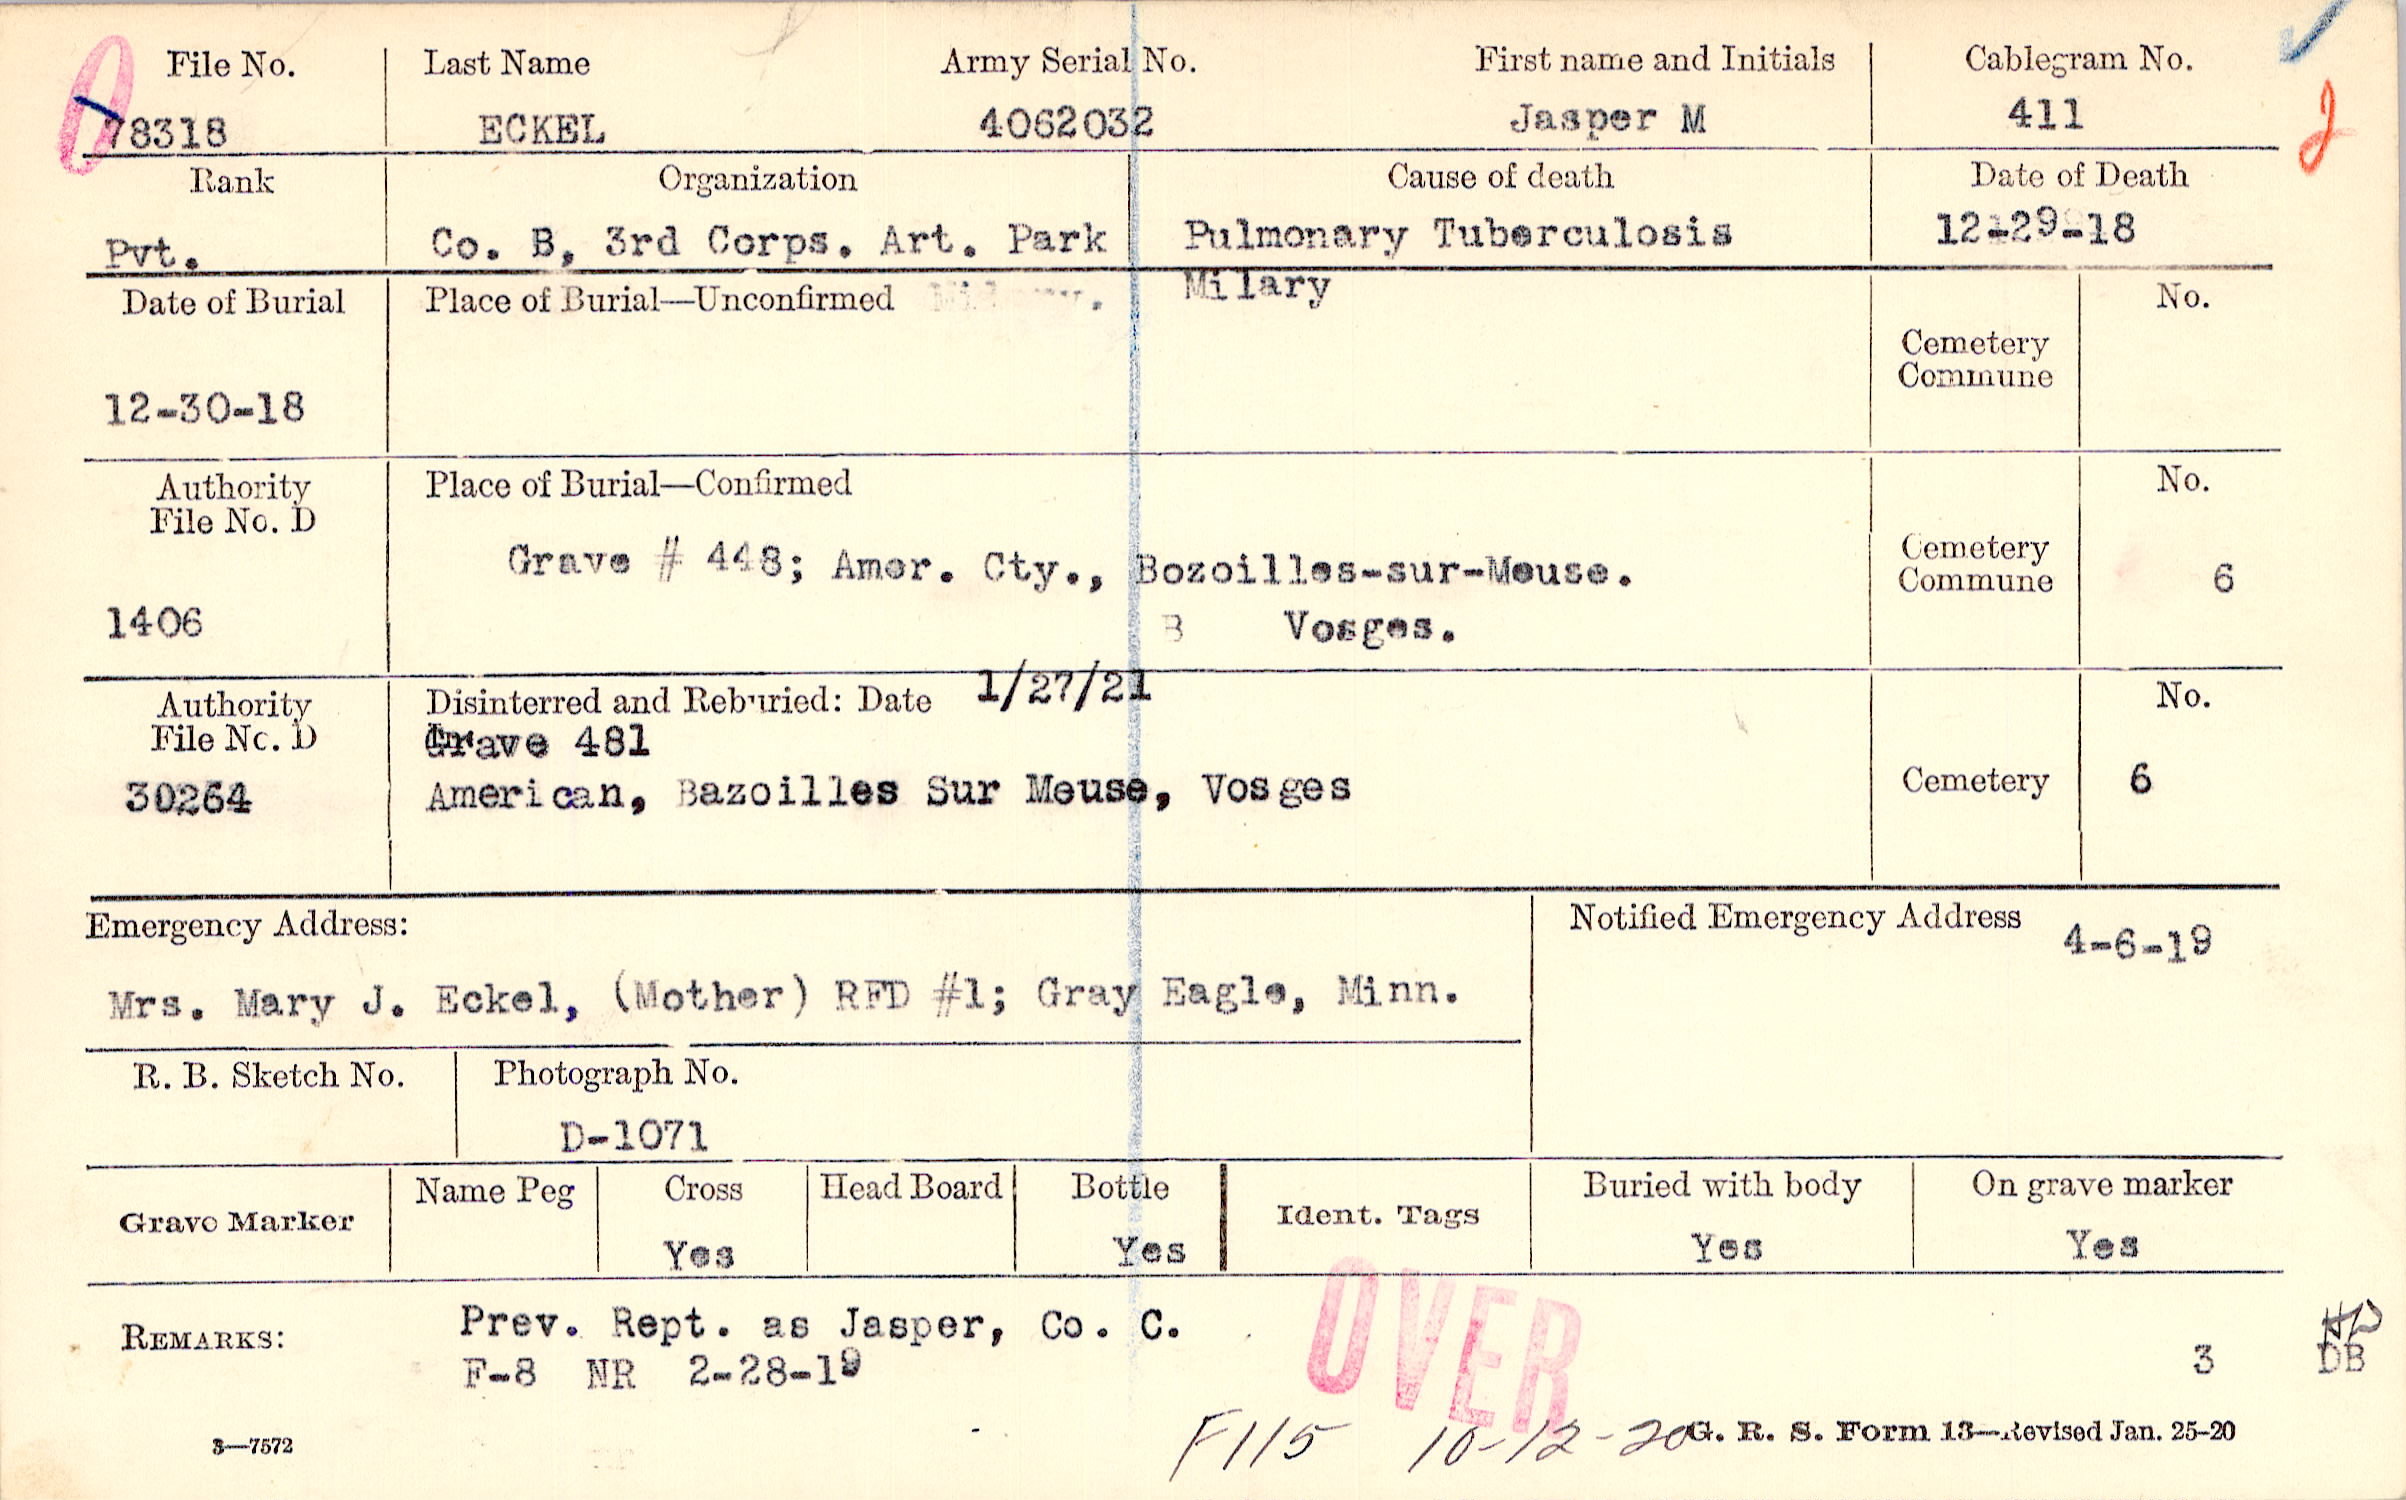 File No. Last Name Army Serial No. First name and Initials Cablegram No.
78318 ECKEL 4062032 Jasper M 411
2
Rank Organization Cause of death Date of Death
Pvt. Co. B, 3rd Corps. Art. Park Pulmonary Tuberculosis 12-29-18
Milary
Date of Burial Place of Burial—Unconfirmed No.
Cemetery
Commune
12-30-18
Authority Place of Burial—Confirmed No.
File No. D
Grave # 448; Amer. Cty., Bozoilles-sur-Meuse. Cemetery
Commune 6
1406 B Vosges.
Authority Disinterred and Reburied: Date 1/27/21 No.
File No. D Grave 481
30264 American, Bazoilles Sur Meuse, Vosges Cemetery 6
Emergency Address: Notified Emergency Address 4-6-19
Mrs. Mary J. Eckel, (Mother) RFD #1; Gray Eagle, Minn.
R. B. Sketch No. Photograph No.
D-1071
Grave Marker Name Peg Cross Head Board Bottle Ident. Tags Buried with body On grave marker
Yes Yes Yes Yes
OVER
REMARKS: Prev. Rept. as Jasper, Co. C.
F-8 NR 2-28-19 3 DB
F115 10-12-20
3—7572 G. R. S. Form 13—Revised Jan. 25-20